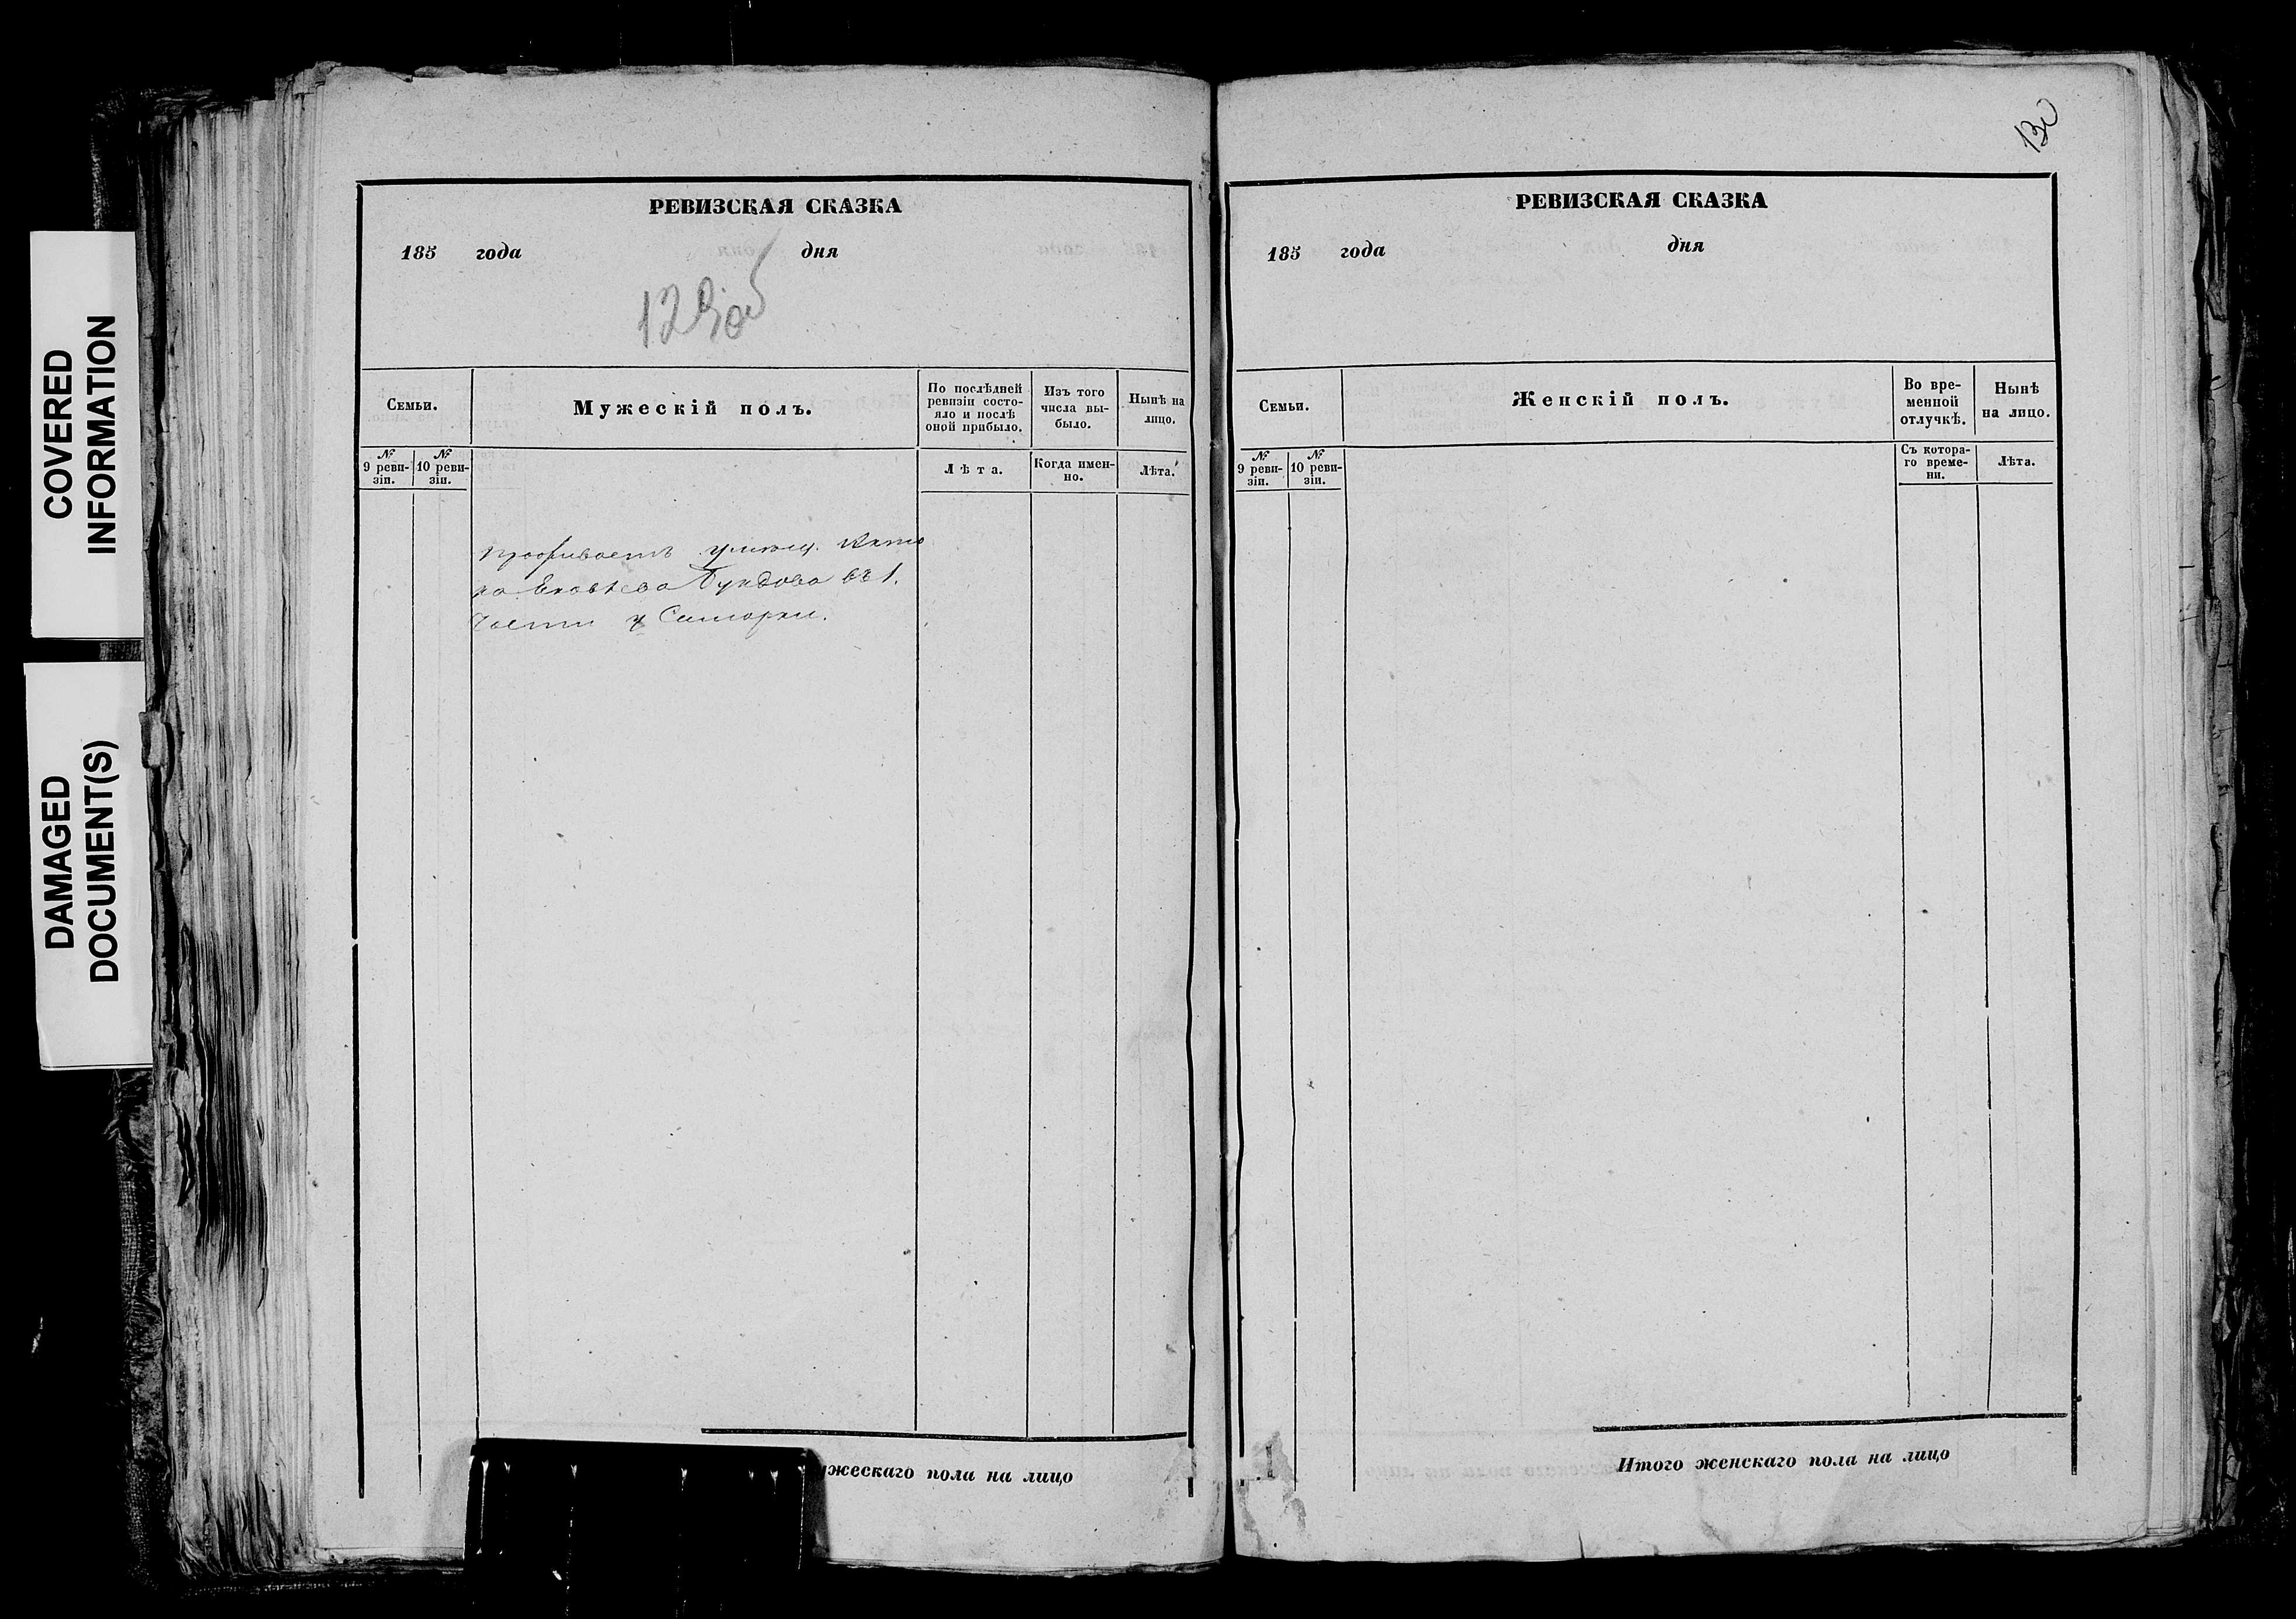 COVERED
INFORMATION
DAMAGED
DOCUMENT(S)
РЕВИЗСКАЯ СКАЗКА
185 года дня
129об
Семьи.
Мужескій полъ.
По послѣдней
ревизіи состо-
яло и послѣ
оной прибыло.
Изъ того
числа вы-
было.
Нынѣ на
лицо.
№
9 реви-
зіи.
№
10 реви-
зіи.
Лѣта.
Когда имен-
но.
Лѣта.
проживаетъ
Яковлева въ 1.
части у
ужескаго пола на лицо
130
РЕВИЗСКАЯ СКАЗКА
185 года дня
Семьи.
Женскій полъ.
Во вре-
менной
отлучкѣ.
Нынѣ
на лицо.
№
9 реви-
зіи.
№
10 реви-
зіи.
Съ котора-
го време-
ни.
Лѣта.
Итого женскаго пола на лицо